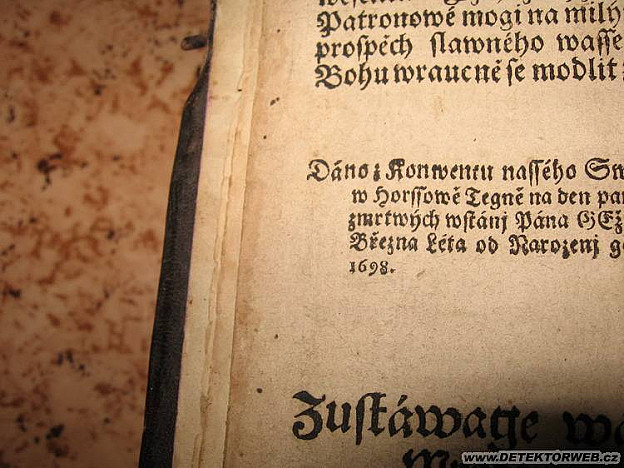 Patronowé mogi na milý
prospěch slawného wasse
Bohu wraucně se modlit
Dáno z Konwentu nassého Sw
w Horssowě Tegně na den pa
zmrtwých wstánj Pána GEž
Března Léta od Narozenj g
1698.
Zustáwage wá
WWW.DETEKTORWEB.CZ